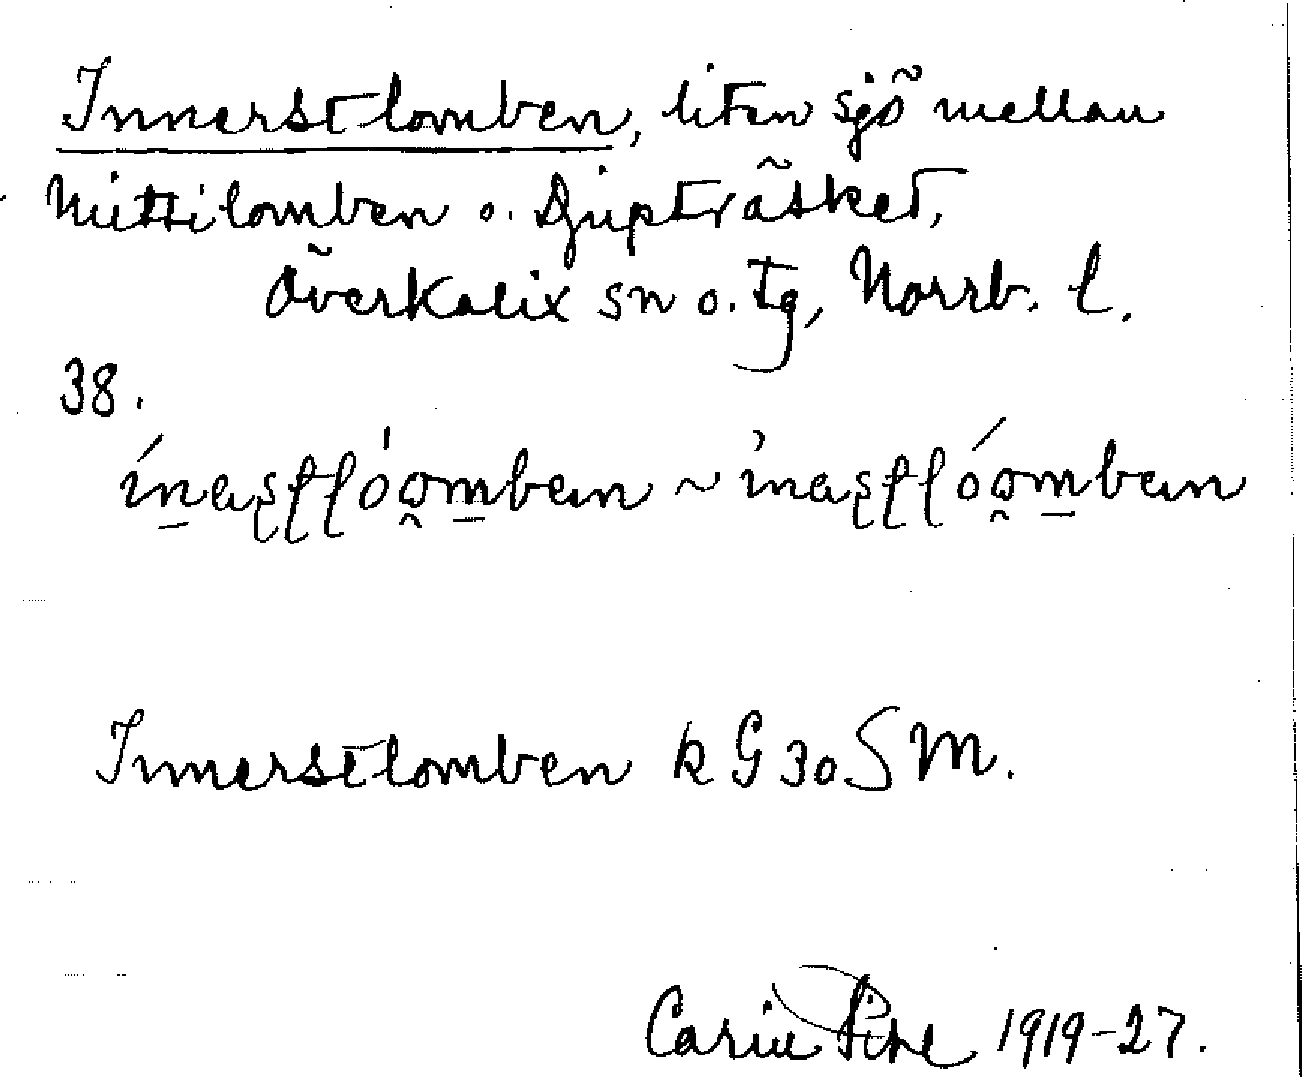 Innerstlomben, liten sjö mellan
Mittilomben o. Djupträsket,
Överkalix sn o. tg, Norrb. l.
38.
Innerstlomben k G 30 S M.
Carin Pihl 1919-27.